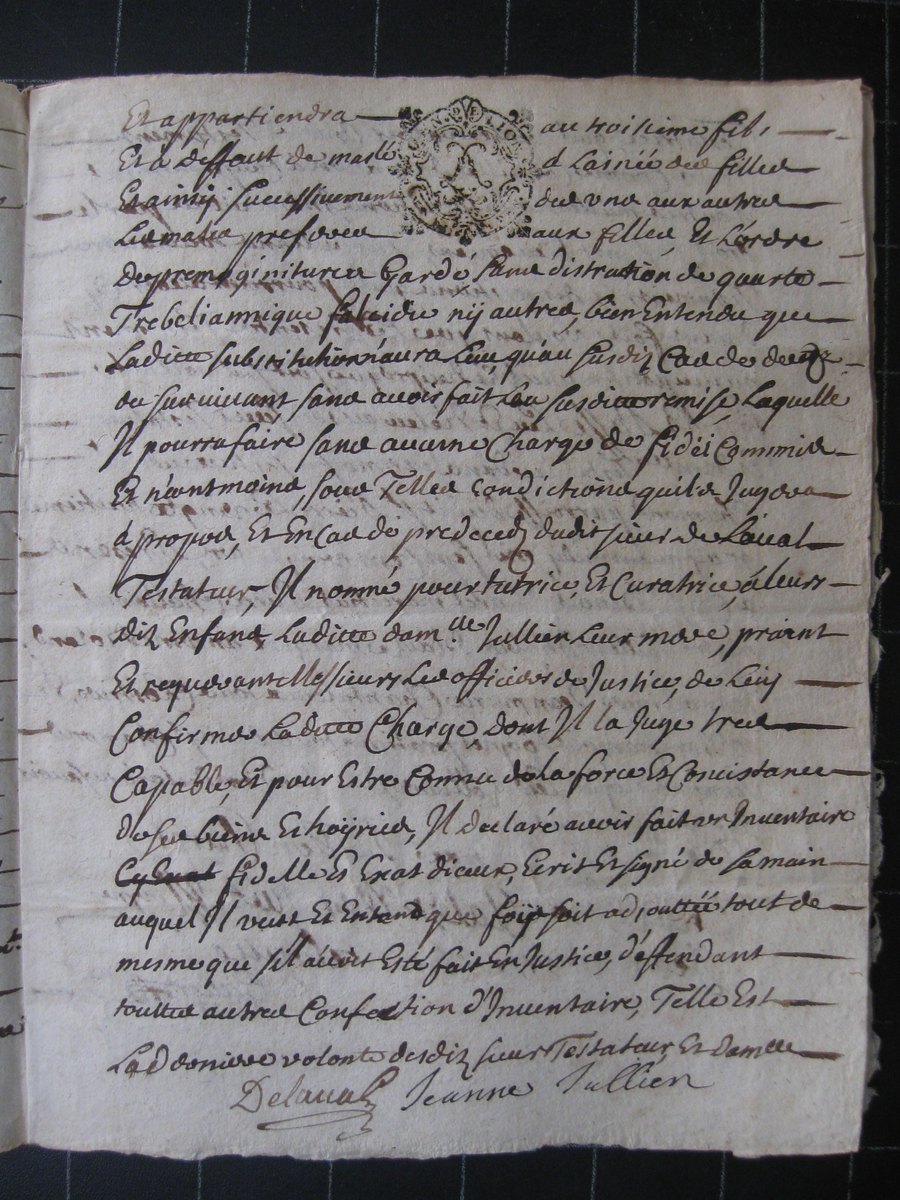 Et appartiendra au troisieme fils
Et a deffaut de masle a lainée des filles
Et ainsy successivement des unes aux autres
Les masles preferés aux filles, Et l'ordre
de premoginiture Gardé sans distration de quarte
Trebeliannique falcidie ny autres, bien Entendu que
Laditte substitution n'aura Lieu qu'au susdit Cas de deces
du survivant, sans avoir fait La susditte remise, Laquelle
Il pourra faire sans aucune Charge de fidei Commis
Et néantmoins, sous Telles condictions quil Jugera
a propos, Et En Cas de predeceds dudit sieur de Laval
Testateur, Il nommé pour tutrice, Et Curatrice, a leurs
dits Enfans Laditte dam.lle Jullien Leur mere, priant
Et requerant Messieurs Les officiers de Justice, de Luy
Confirmer Laditte Charge dont Il la Juge tres
Capable, Et pour Estre Connu de la force Et Concistance
de ses biens Et hoyries, Il declaré avoir fait un Inventaire
fidelle Et Exat diceux, Ecrit Et signé de sa main
auquel Il veut Et Entend que foy soit adjouttée tout de
mesme que sil avoit Esté fait En Justice, deffendant
touttes autres Confection d'Inventaire, Telle Est
La derniere volonte desdits sieur Testateur Et dam.lle
Delaval Jeanne Jullien